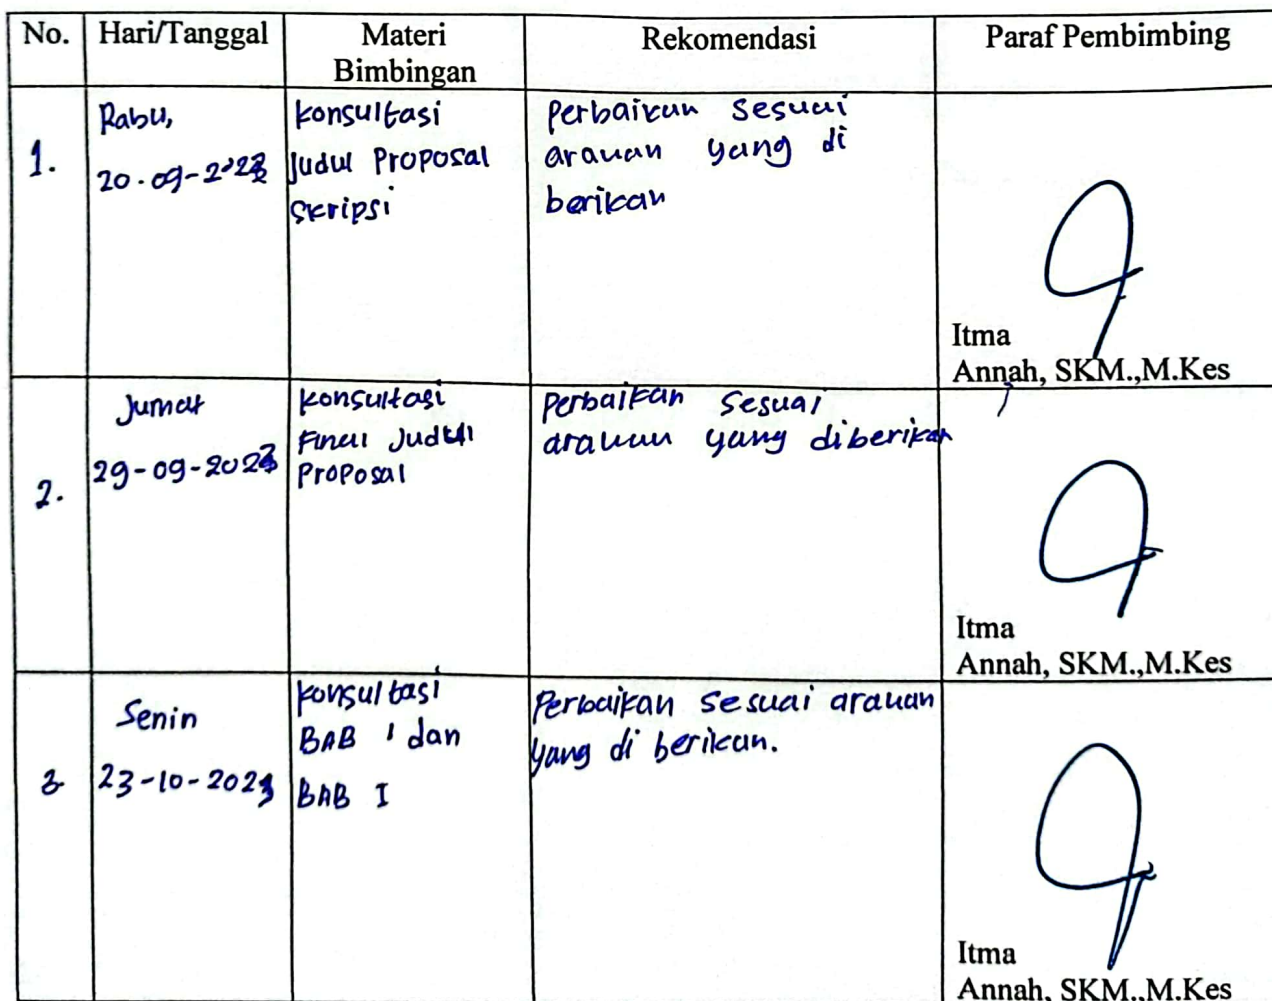 No. Hari/Tanggal Materi Bimbingan Rekomendasi Paraf Pembimbing
1.
Rabu,
20-09-2023
Konsultasi
Judul Proposal
Skripsi
Perbaikan Sesuai
arahan yang di
berikan
Itma
Annah, SKM.,M.Kes
2.
Jumat
29-09-2023
Konsultasi
Final Judul
Proposal
Perbaikan Sesuai
arahan yang diberikan
Itma
Annah, SKM.,M.Kes
3
Senin
23-10-2023
Konsultasi
BAB I dan
BAB I
Perbaikan Sesuai arahan
yang di berikan.
Itma
Annah, SKM.,M.Kes